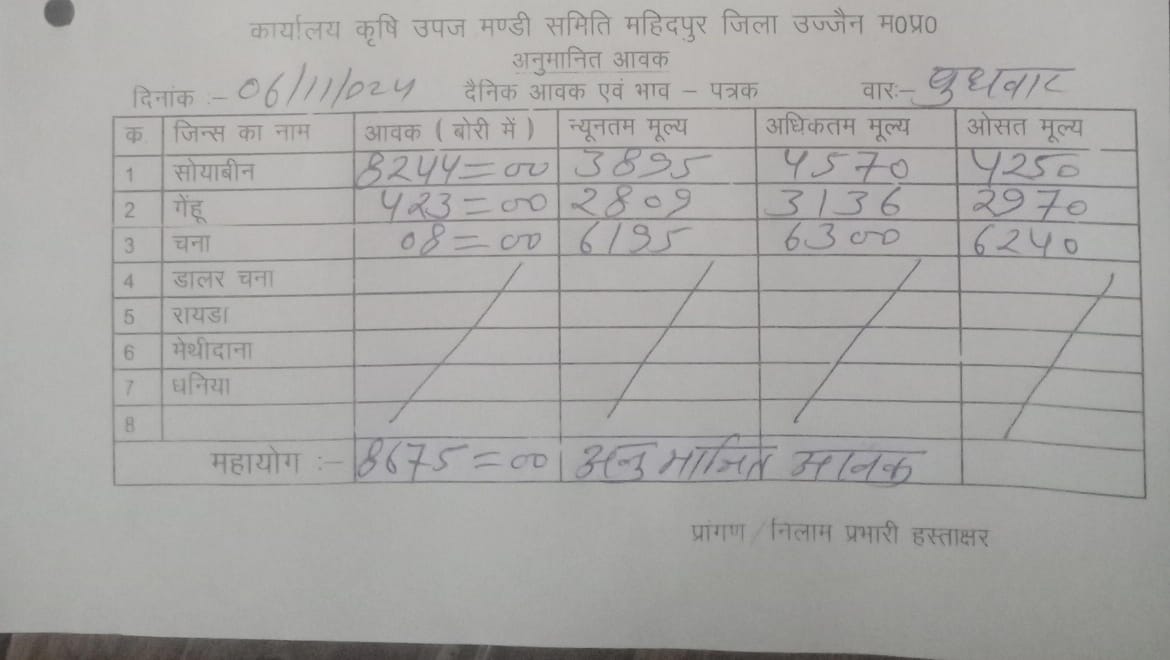 कार्यालय कृषि उपज मण्डी समिति महिदपुर जिला उज्जैन म०प्र०
अनुमानित आवक
दिनांक :- 06/11/024 दैनिक आवक एवं भाव - पत्रक वारः- बुधवार
क. जिन्स का नाम आवक ( बोरी में ) न्यूनतम मूल्य अधिकतम मूल्य ओसत मूल्य
1 सोयाबीन 8244=00 3895 4570 4250
2 गेंहू 423=00 2809 3136 2970
3 चना 08=00 6195 6300 6240
4 डालर चना
5 रायडा
6 मेथीदाना
7 धनिया
8
महायोग :- 8675=00 अनुमानित आवक
प्रांगण / निलाम प्रभारी हस्ताक्षर